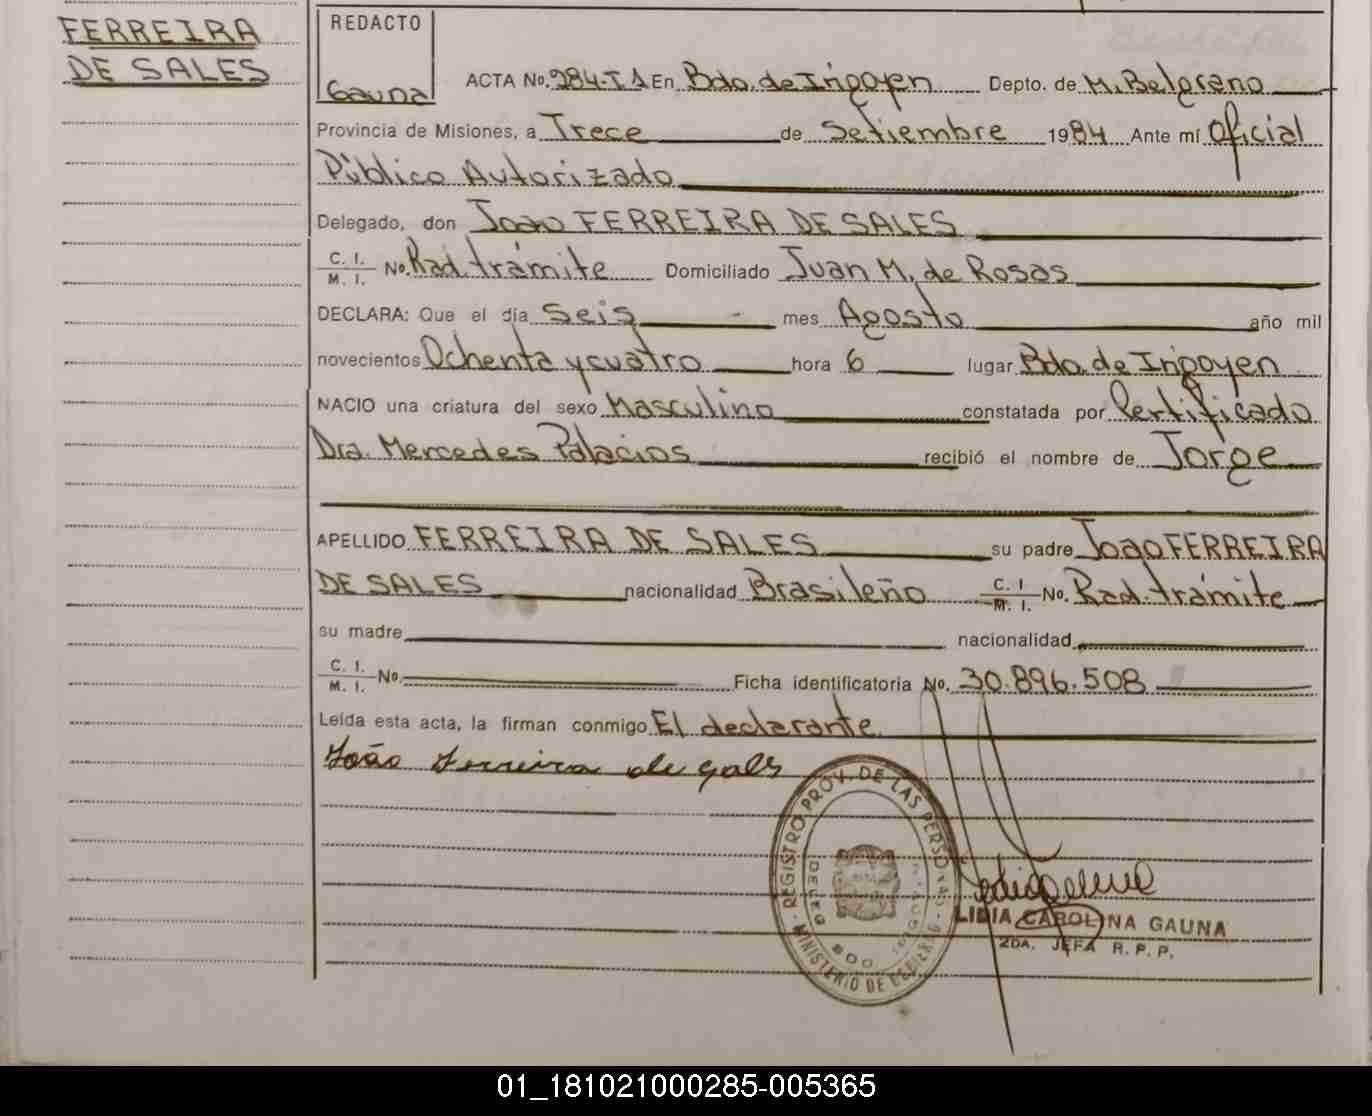 FERREIRA
DE SALES
REDACTO
Gauna
ACTA No. 284-T1 En Bdo. de Irigoyen Depto. de M. Belgrano
Provincia de Misiones, a Trece de Setiembre 1984 Ante mí Oficial
Público Autorizado
Delegado, don Joao FERREIRA DE SALES
C. I.
M. I. No. Rad. trámite Domiciliado Juan M. de Rosas
DECLARA: Que el día Seis mes Agosto año mil
novecientos Ochenta y cuatro hora 6 lugar Bdo. de Irigoyen
NACIO una criatura del sexo Masculino constatada por Certificado
Dra. Mercedes Palacios recibió el nombre de Jorge
APELLIDO FERREIRA DE SALES su padre Joao FERREIRA
DE SALES nacionalidad Brasileño C. I.
M. I. No. Rad. trámite
su madre nacionalidad
C. I.
M. I. No. Ficha identificatoria No. 30.896.508
Leída esta acta, la firman conmigo El declarante
João Ferreira de Sales
REGISTRO PROV. DE LAS PERSONAS
MINISTERIO DE GOBIERNO
BDO
LIDIA CAROLINA GAUNA
2DA. JEFA R. P. P.
01_181021000285-005365